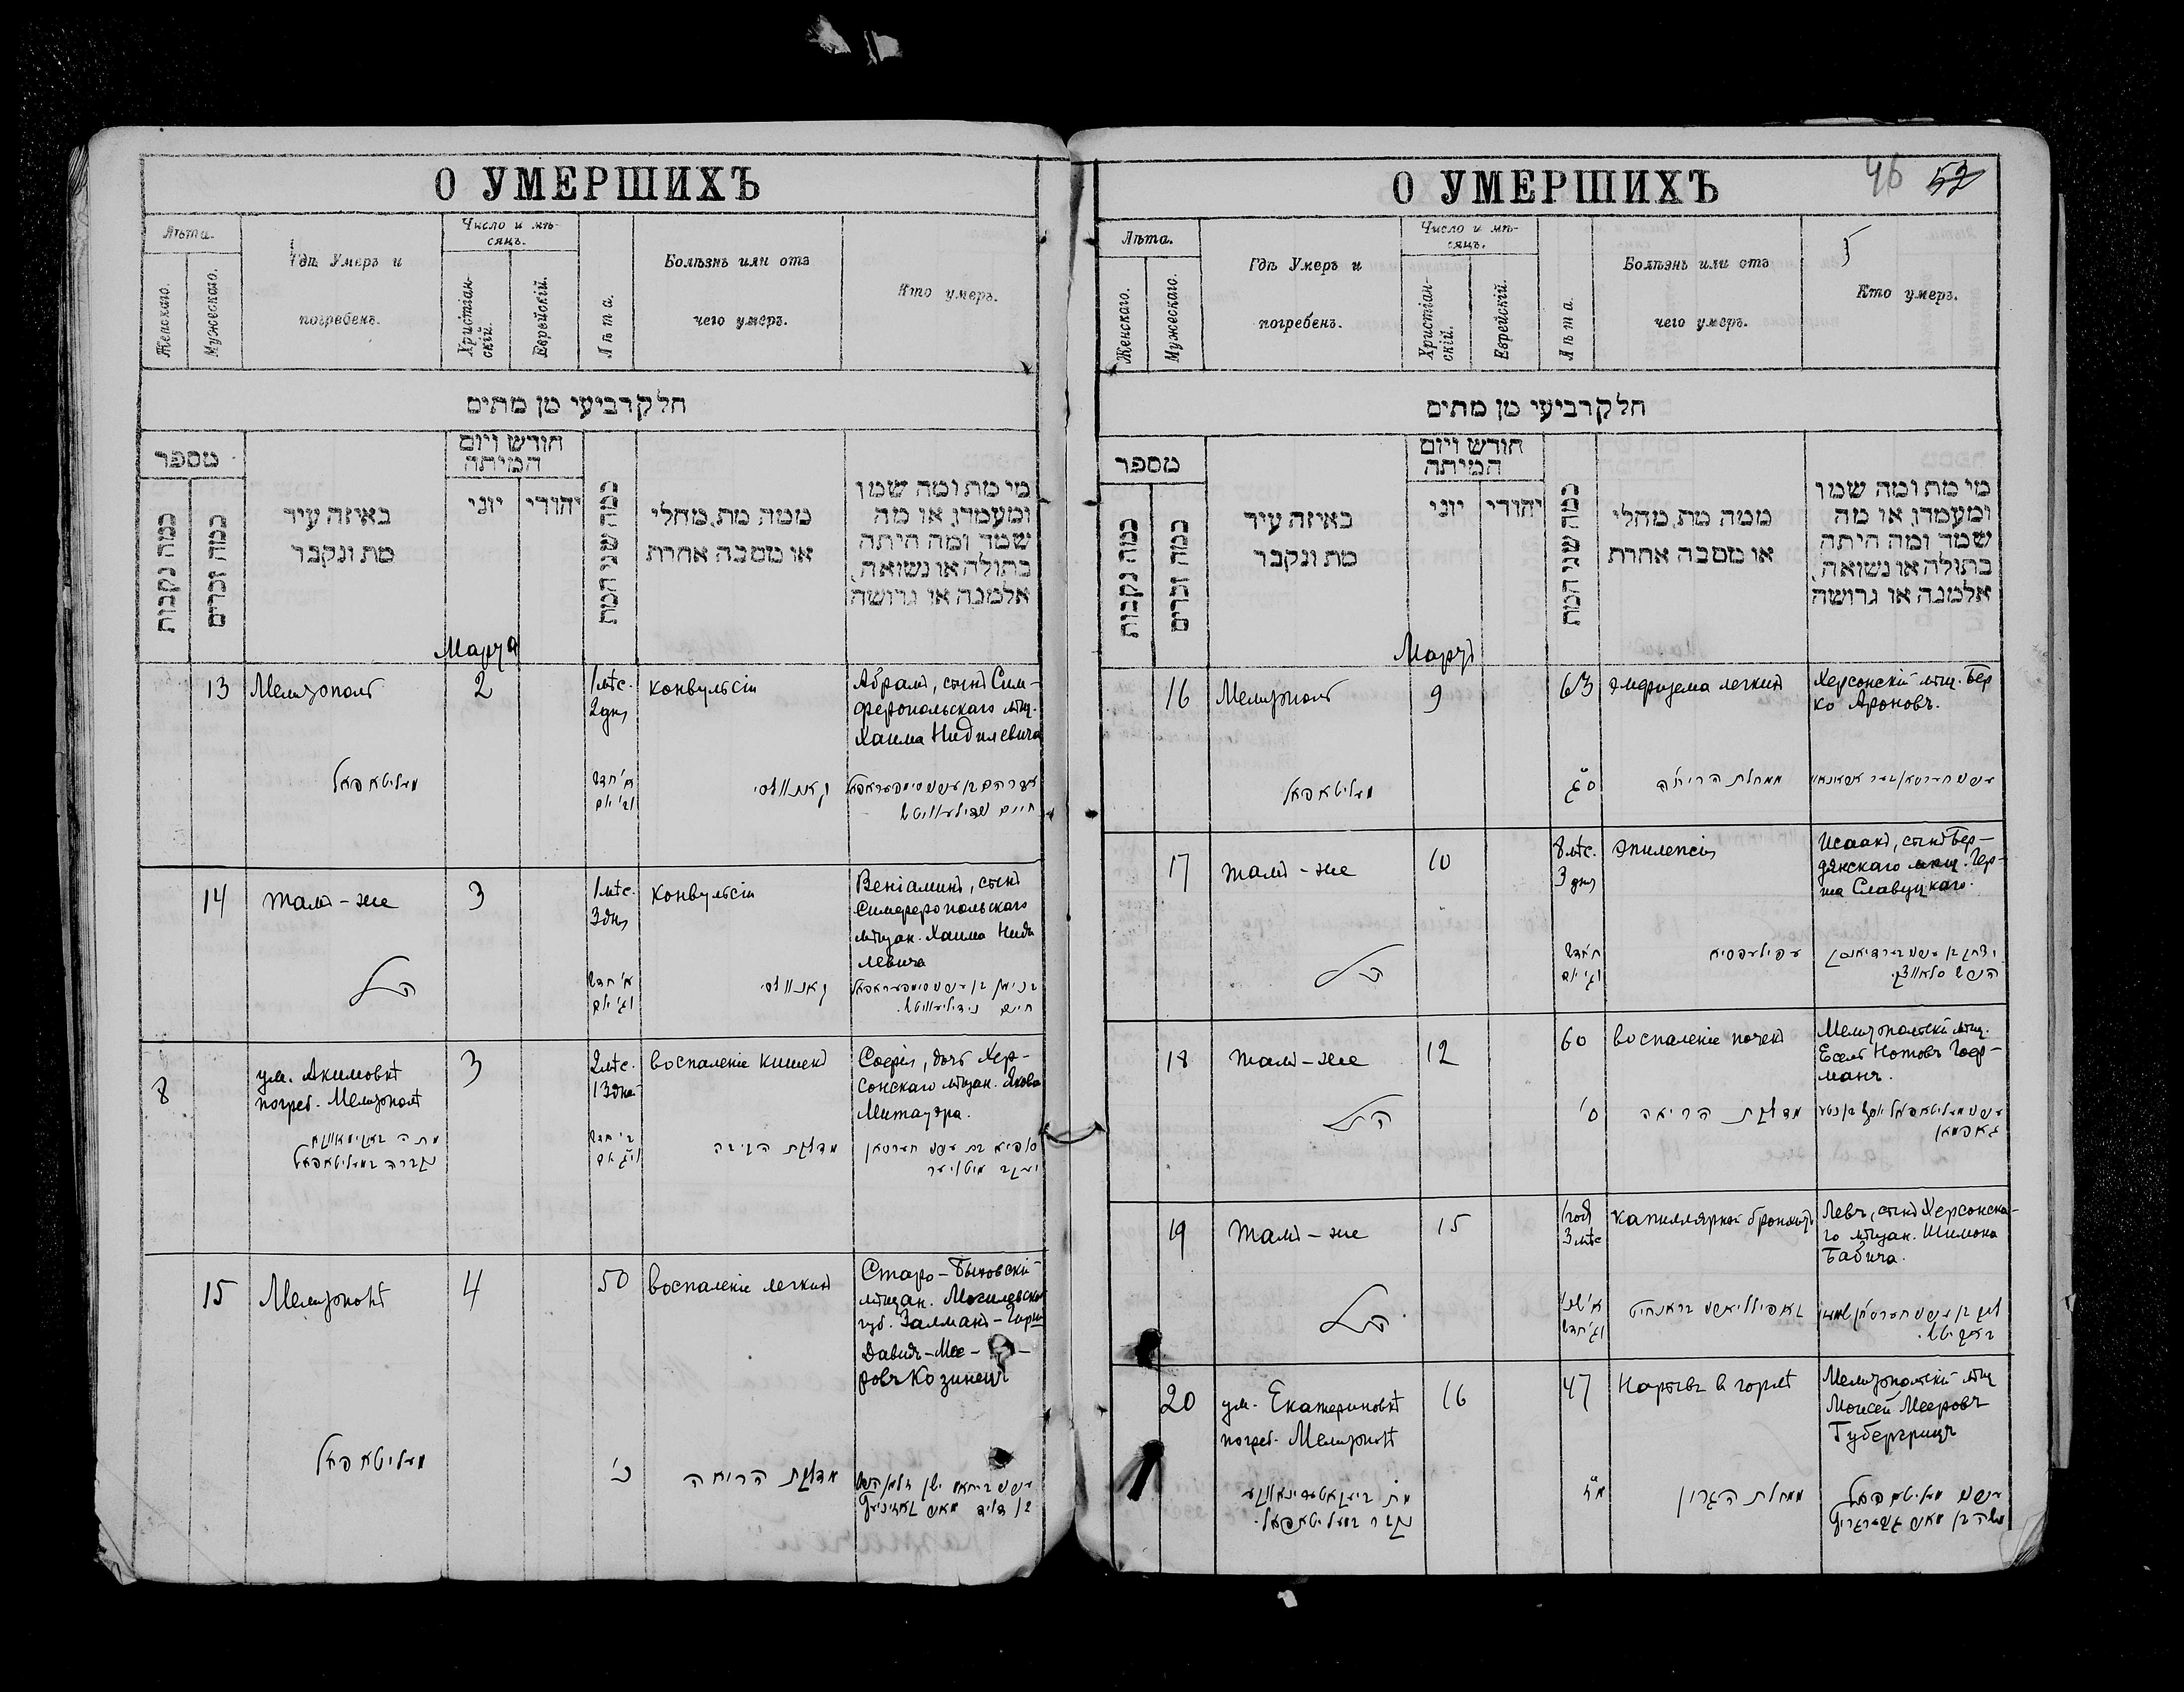 О УМЕРШИХЪ
Лѣта.
Женскаго.
Мужескаго.
Гдѣ Умеръ и
погребенъ.
Число и мѣ-
сяцъ.
Христіан-
скій.
Еврейскій.
Лѣта.
Болѣзнь или отъ
чего умеръ.
Кто умеръ.
חלק רביעי מן מתים
מספר
כמה נקבות
כמה זכרים
באיזה עיר
מת ונקבר
חודש ויום
המיתה
יוני
יהודי
כמה שני המת
ממה מת, מחלי
או מסבה אחרת
מי מת ומה שמו
ומעמדו, או מה
שמה ומה היתה
בתולה או נשואה,
אלמנה או גרושה
Марта
13 Мелитополь 2
1 мѣс.
2 дня
конвульсіи
Абрамъ, сынъ Сим-
феропольскаго мѣщ.
Хаима Нидилевича
מעליטאפאל
א' חדש
וב' יום
14 тамъ-же 3
1 мѣс.
3 дня
конвульсіи
Веніаминъ, сынъ
Симферопольскаго
мѣщан. Хаима Ниди
левича
הנ"ל
א' חדש
וג' יום
8
ум. Акимовкѣ
погреб. Мелитополѣ
3
2 мѣс.
13 дней
воспаленіе кишекъ
Софія, дочь Хер-
сонскаго мѣщан. Якова
מתה באקימאווקא
נקברה במעליטאפאל
ב' חדש
וי"ג יום
15 Мелитополѣ 4 50 воспаленіе легкихъ
Старо-Быховскій
мѣщан. Могилевской
губ. Залманъ-Гирш
Давидъ-Мее-
ровъ Козинецъ
מעליטאפאל
נ'
דלקת הריאה
46 52
О УМЕРШИХЪ
Лѣта.
Женскаго.
Мужескаго.
Гдѣ Умеръ и
погребенъ.
Число и мѣ-
сяцъ.
Христіан-
скій.
Еврейскій.
Лѣта.
Болѣзнь или отъ
чего умеръ.
Кто умеръ.
חלק רביעי מן מתים
מספר
כמה נקבות
כמה זכרים
באיזה עיר
מת ונקבר
חודש ויום
המיתה
יוני
יהודי
כמה שני המת
ממה מת, מחלי
או מסבה אחרת
מי מת ומה שמו
ומעמדו, או מה
שמה ומה היתה
בתולה או נשואה,
אלמנה או גרושה
Мартъ
16 Мелитополь 9 63 эмфизема легкихъ
Херсонскій мѣщ. Бер
ко Ароновъ.
מעליטאפאל
ס"ג
מחלת הריאה
17 тамъ-же 10
8 мѣс.
3 дня
эпилепсія
Исаакъ, сынъ Бер-
дянскаго мѣщ. Гер-
ша Славуцкаго.
הנ"ל
ח' חדש
וג' יום
עפילעפסיא
18 тамъ-же 12 60 воспаленіе почекъ
Мелитопольскій мѣщ.
Есель Нотовъ Гоф-
манъ.
הנ"ל
ס'
דלקת הריאה
19 тамъ-же 15
1 годъ
3 мѣс
капиллярной бронхитъ
Левъ, сынъ Херсонска-
го мѣщан. Шимона
Бабича.
הנ"ל
א' שנה
וג' חדש
20
ум. Екатериновкѣ
погреб. Мелитополѣ
16 47 Нарывъ в горлѣ
Мелитопольскій мѣщ
Моисей Мееровъ
Губергрицъ
נקבר במעליטאפאל.
מ"ז
מחלת הגרון